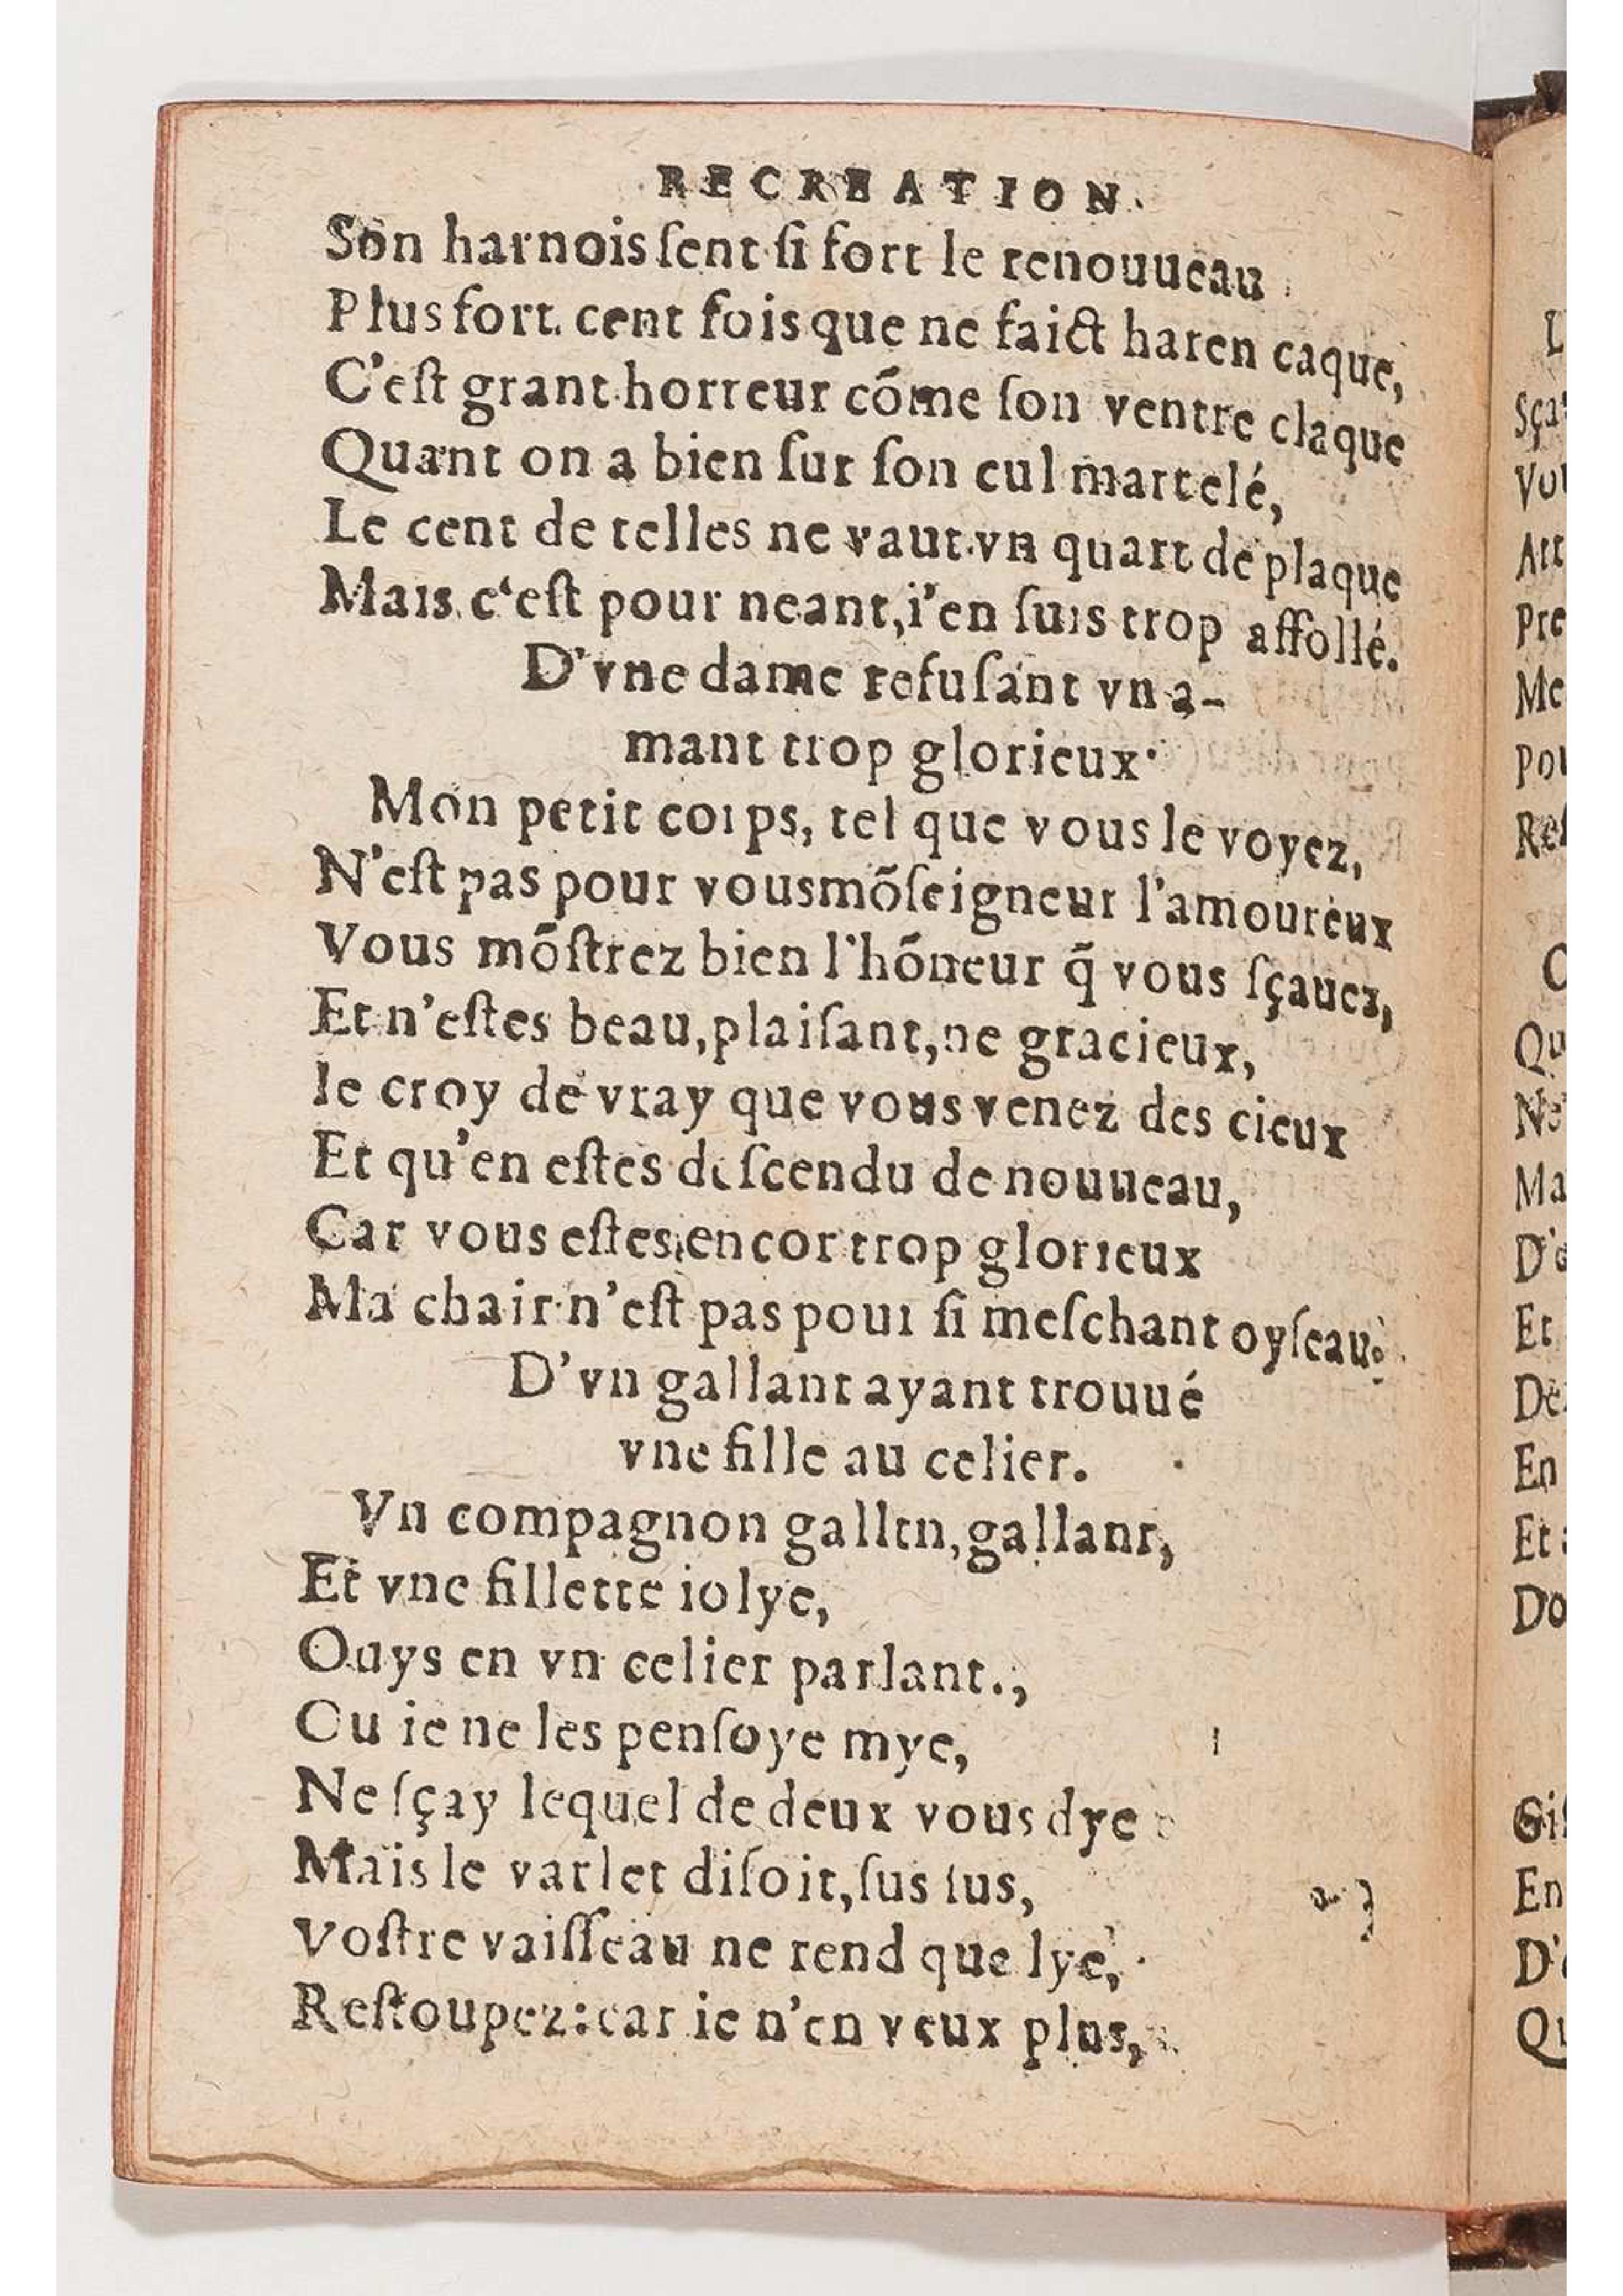 RECREATION.
Son harnois ſent ſi fort le renouueau
Plus fort cent fois que ne faict haren caque,
C'eſt grant horreur cõme ſon ventre claque
Quant on a bien ſur ſon cul martelé,
Le cent de telles ne vaut vn quart de plaque
Mais c'eſt pour neant, i'en ſuis trop affollé.
D'vne dame refuſant vn a-
mant trop glorieux.
Mon petit corps, tel que vous le voyez,
N'eſt pas pour vous mõſeigneur l'amoureux
Vous mõſtrez bien l'hõneur q̃ vous ſçauez,
Et n'eſtes beau, plaiſant, ne gracieux,
Ie croy de vray que vous venez des cieux
Et qu'en eſtes deſcendu de nouueau,
Car vous eſtes encor trop glorieux
Ma chair n'eſt pas pour ſi meſchant oyſeau.
D'vn gallant ayant trouué
vne fille au celier.
Vn compagnon galltn, gallant,
Et vne fillette iolye,
Ouys en vn celier parlant.,
Ou ie ne les penſoye mye,
Ne ſçay lequel de deux vous dye
Mais le varlet diſoit, ſus ſus,
Voſtre vaiſſeau ne rend que lye,
Reſtoupez: car ie n'en veux plus,